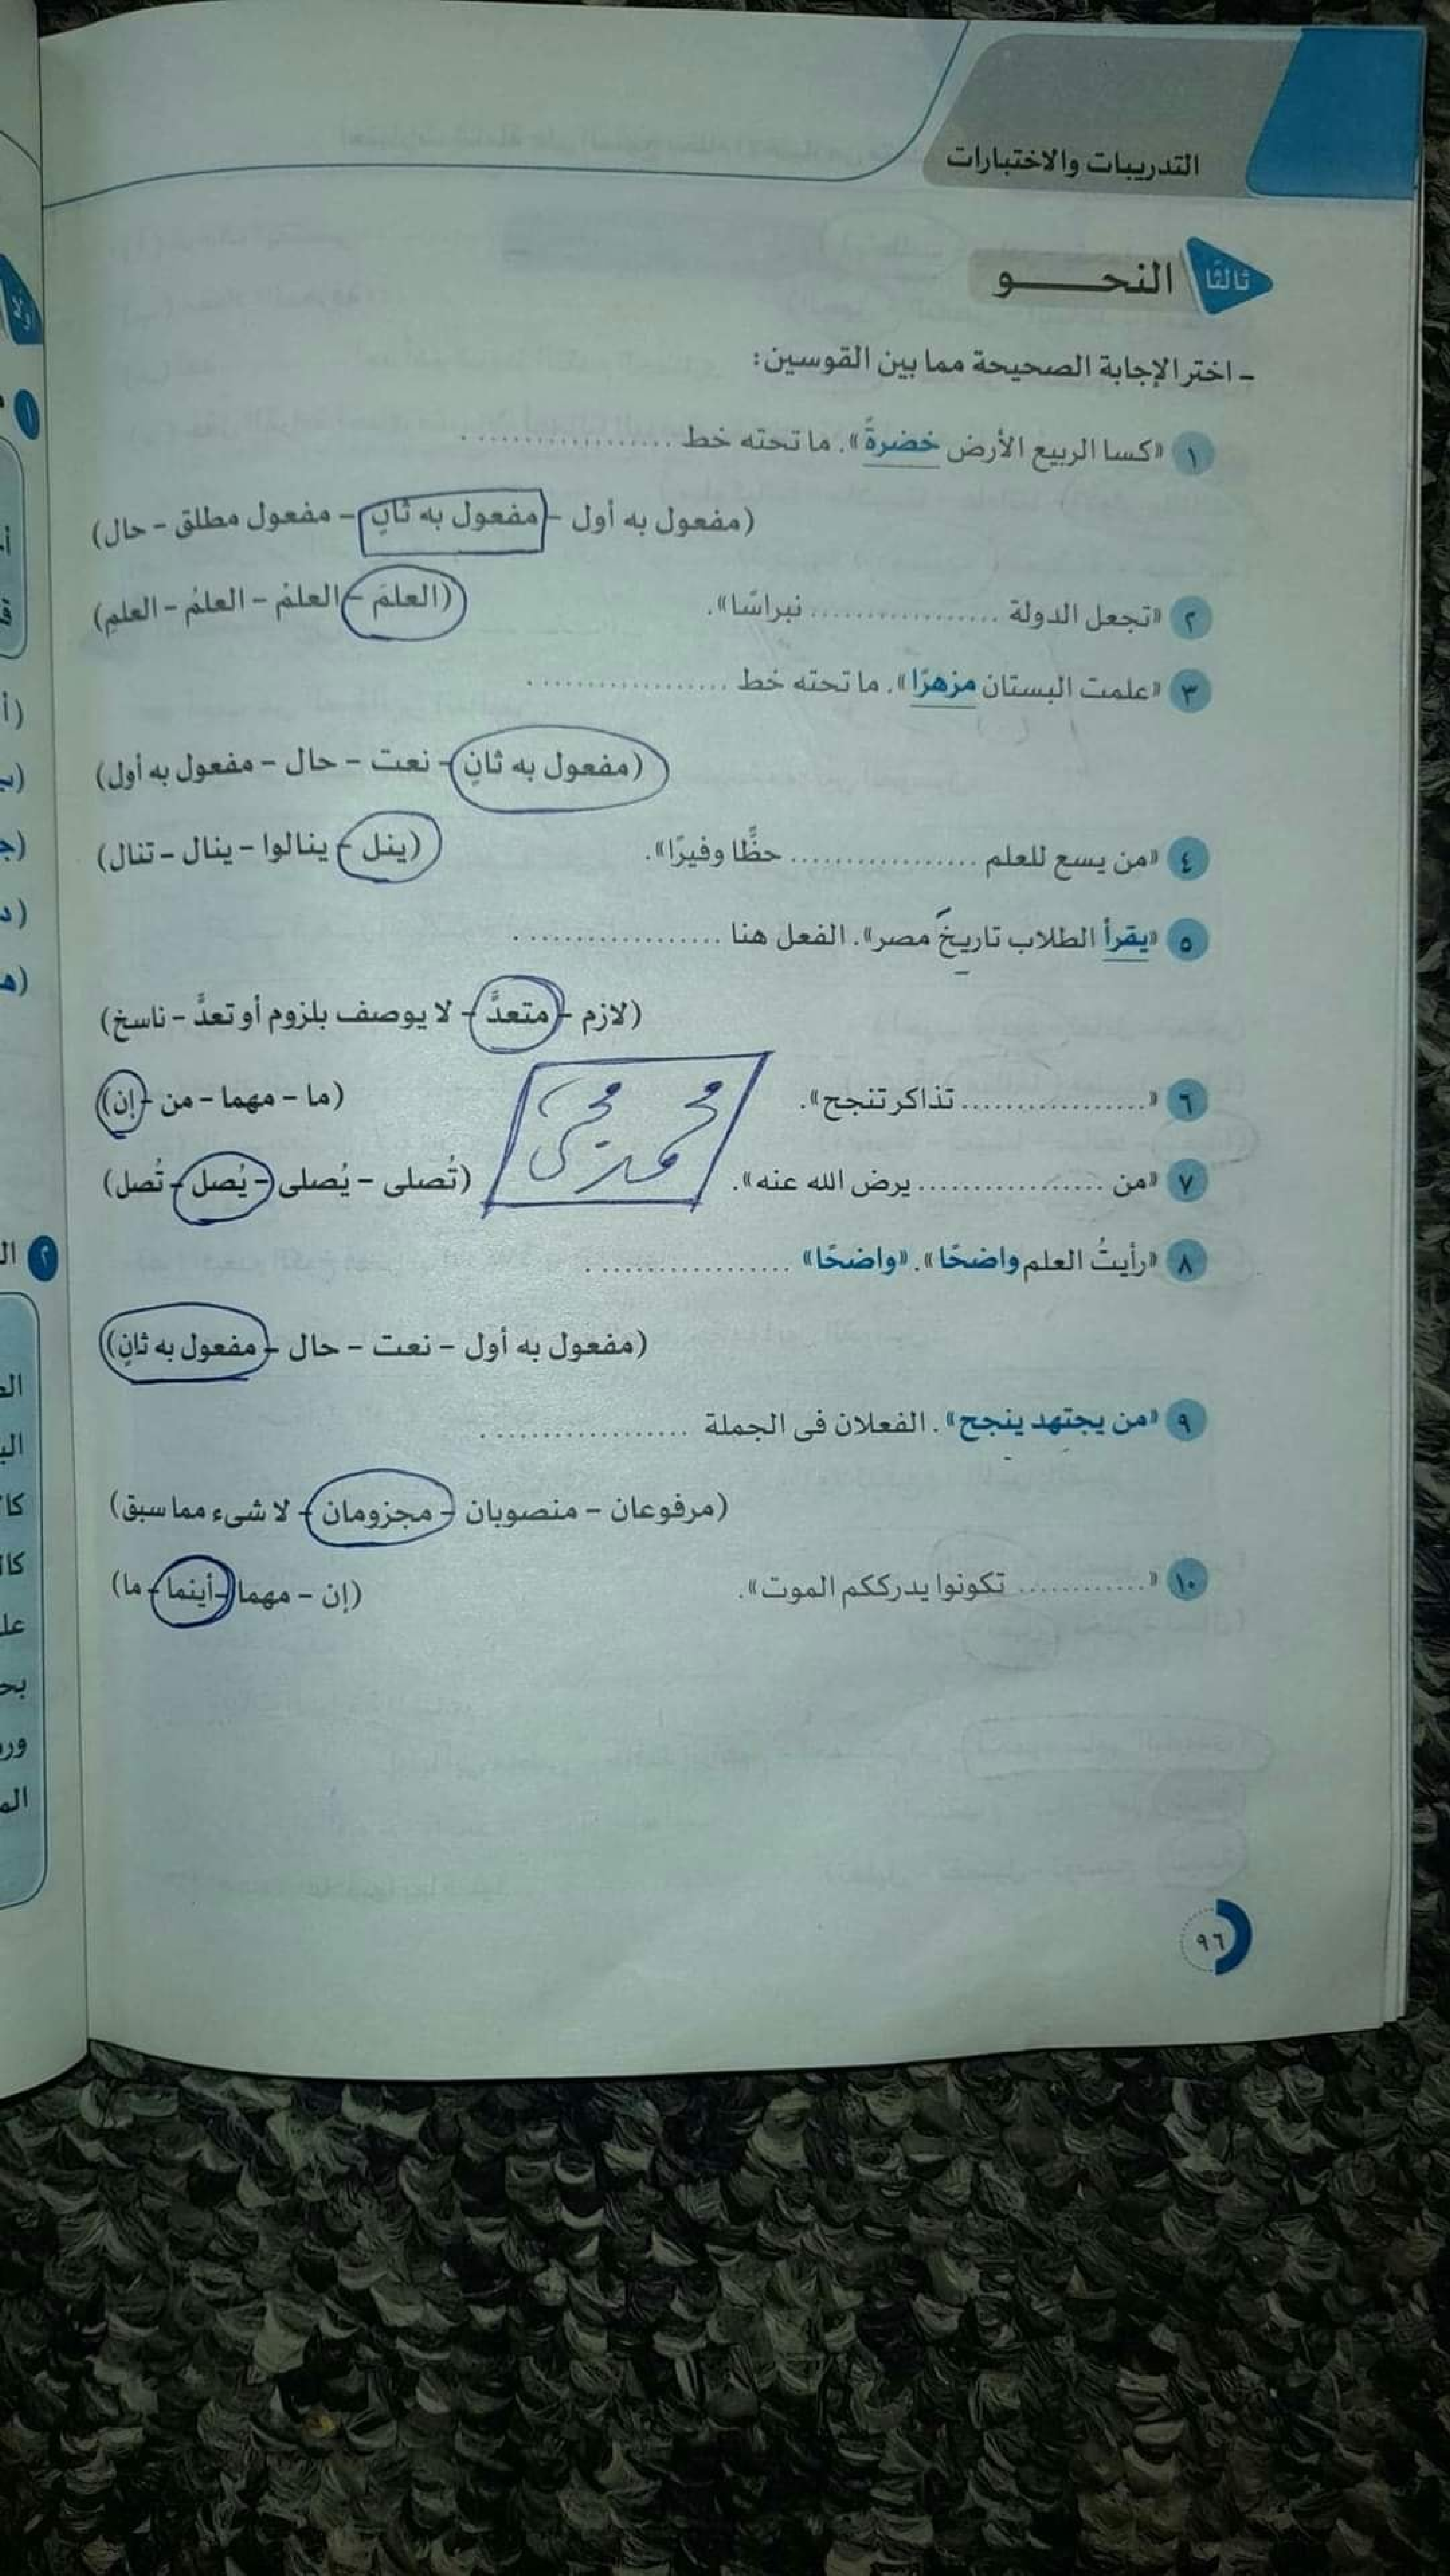 التدريبات والاختبارات
ثالثًا النحـــــو
- اختر الإجابة الصحيحة مما بين القوسين:
١ «كسا الربيع الأرض خضرةً». ما تحته خط ..................
(مفعول به أول - مفعول به ثانٍ - مفعول مطلق - حال)
٢ «تجعل الدولة .................. نبراسًا». (العلمَ - العلمْ - العلمُ - العلمِ)
٣ «علمت البستان مزهرًا». ما تحته خط ..................
(مفعول به ثانٍ - نعت - حال - مفعول به أول)
٤ «من يسع للعلم .................. حظًّا وفيرًا». (ينل - ينالوا - ينال - تنال)
٥ «يقرأ الطلاب تاريخَ مصر». الفعل هنا ..................
(لازم - متعدٍّ - لا يوصف بلزوم أو تعدٍّ - ناسخ)
٦ «.................. تذاكر تنجح». (ما - مهما - من - إن)
٧ «من .................. يرض الله عنه». (تُصلى - يُصلى - يُصل - تُصل)
محمد يحيى
٨ «رأيتُ العلم واضحًا». «واضحًا» ..................
(مفعول به أول - نعت - حال - مفعول به ثانٍ)
٩ «من يجتهد ينجح». الفعلان فى الجملة ..................
(مرفوعان - منصوبان - مجزومان - لا شىء مما سبق)
١٠ «............ تكونوا يدرككم الموت». (إن - مهما - أينما - ما)
٩٦